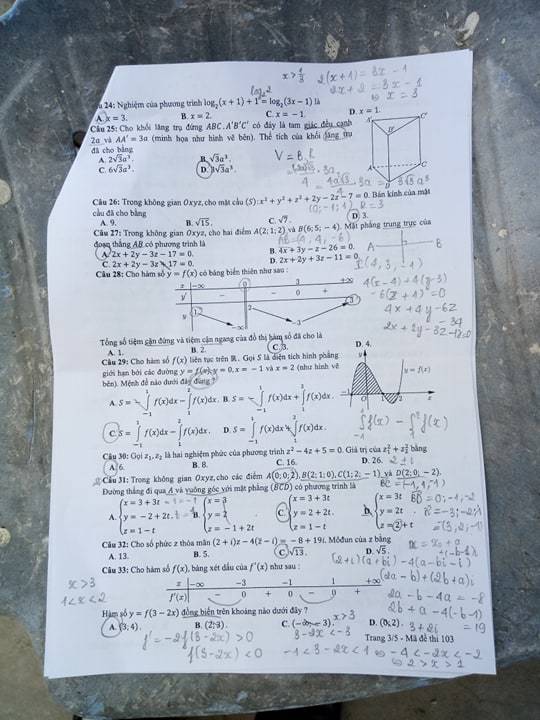 x > 1/3
2(x+1) = 3x - 1
2x + 2 = 3x - 1
⇔ x = 3
log₂2
u 24: Nghiệm của phương trình log₂(x + 1) + 1 = log₂(3x − 1) là
A. x = 3. B. x = 2. C. x = −1. D. x = 1.
Câu 25: Cho khối lăng trụ đứng ABC.A'B'C' có đáy là tam giác đều cạnh
2a và AA' = 3a (minh họa như hình vẽ bên). Thể tích của khối lăng trụ
đã cho bằng
A. 2√3a³. B. √3a³.
C. 6√3a³. D. 3√3a³.
V = B.h
A' B' C' A B C
Câu 26: Trong không gian Oxyz, cho mặt cầu (S): x² + y² + z² + 2y − 2z − 7 = 0. Bán kính của mặt
cầu đã cho bằng
(0; -1; 1) R = 3
A. 9. B. √15. C. √7. D. 3.
Câu 27: Trong không gian Oxyz, cho hai điểm A(2; 1; 2) và B(6; 5; −4). Mặt phẳng trung trực của
đoạn thẳng AB có phương trình là
AB = (4, 4, -6)
A. 2x + 2y − 3z − 17 = 0. B. 4x + 3y − z − 26 = 0.
C. 2x + 2y − 3z + 17 = 0. D. 2x + 2y + 3z − 11 = 0.
A B
I(4, 3, -1)
Câu 28: Cho hàm số y = f(x) có bảng biến thiên như sau :
x −∞ 0 3 +∞
y' − − 0 +
y 1 −∞ 2 −3 3
4(x-4) + 4(y-3)
-6(z+1) = 0
4x + 4y - 6z
- 34
2x + 2y - 3z - 17 = 0
Tổng số tiệm cận đứng và tiệm cận ngang của đồ thị hàm số đã cho là
A. 1. B. 2. C. 3. D. 4.
Câu 29: Cho hàm số f(x) liên tục trên ℝ. Gọi S là diện tích hình phẳng
giới hạn bởi các đường y = f(x), y = 0, x = −1 và x = 2 (như hình vẽ
bên). Mệnh đề nào dưới đây đúng ?
A. S = −∫₋₁¹ f(x)dx − ∫₁² f(x)dx. B. S = −∫₋₁¹ f(x)dx + ∫₁² f(x)dx.
C. S = ∫₋₁¹ f(x)dx − ∫₁² f(x)dx. D. S = ∫₋₁¹ f(x)dx + ∫₁² f(x)dx.
y = f(x)
−1 1 2
∫f(x) - ∫f(x)
Câu 30: Gọi z₁, z₂ là hai nghiệm phức của phương trình z² − 4z + 5 = 0. Giá trị của z₁² + z₂² bằng
A. 6. B. 8. C. 16. D. 26.
2 ± i
Câu 31: Trong không gian Oxyz, cho các điểm A(0; 0; 2), B(2; 1; 0), C(1; 2; −1) và D(2; 0; −2).
Đường thẳng đi qua A và vuông góc với mặt phẳng (BCD) có phương trình là
BC = (-1, 1, -1)
A. { x = 3 + 3t, y = −2 + 2t, z = 1 − t. B. { x = 3, y = 2, z = −1 + 2t. C. { x = 3 + 3t, y = 2 + 2t, z = 1 − t. D. { x = 3t, y = 2t, z = 2 + t.
BD = 0; -1; -2
= (3, 2, -1)
Câu 32: Cho số phức z thỏa mãn (2 + i)z − 4(z̄ − i) = −8 + 19i. Môđun của z bằng
A. 13. B. 5. C. √13. D. √5.
(2+i)(a+bi) - 4(a-bi-i)
(2a-b) + (2b+a)i
2a - b - 4a = -8
2b + a - 4(-b-1)
= 19
3 + 2i
Câu 33: Cho hàm số f(x), bảng xét dấu của f'(x) như sau :
x −∞ −3 −1 1 +∞
f'(x) − 0 + 0 − 0 +
x > 3
1 < x < 2
Hàm số y = f(3 − 2x) đồng biến trên khoảng nào dưới đây ?
A. (3; 4). B. (2; 3). C. (−∞; −3). D. (0; 2).
x > 3
f' = -2f'(3-2x) > 0
f'(3-2x) < 0
3 - 2x < -3
-1 < 3 - 2x < 1 ⇔ -4 < -2x < -2
⇔ 2 > x > 1
Trang 3/5 - Mã đề thi 103